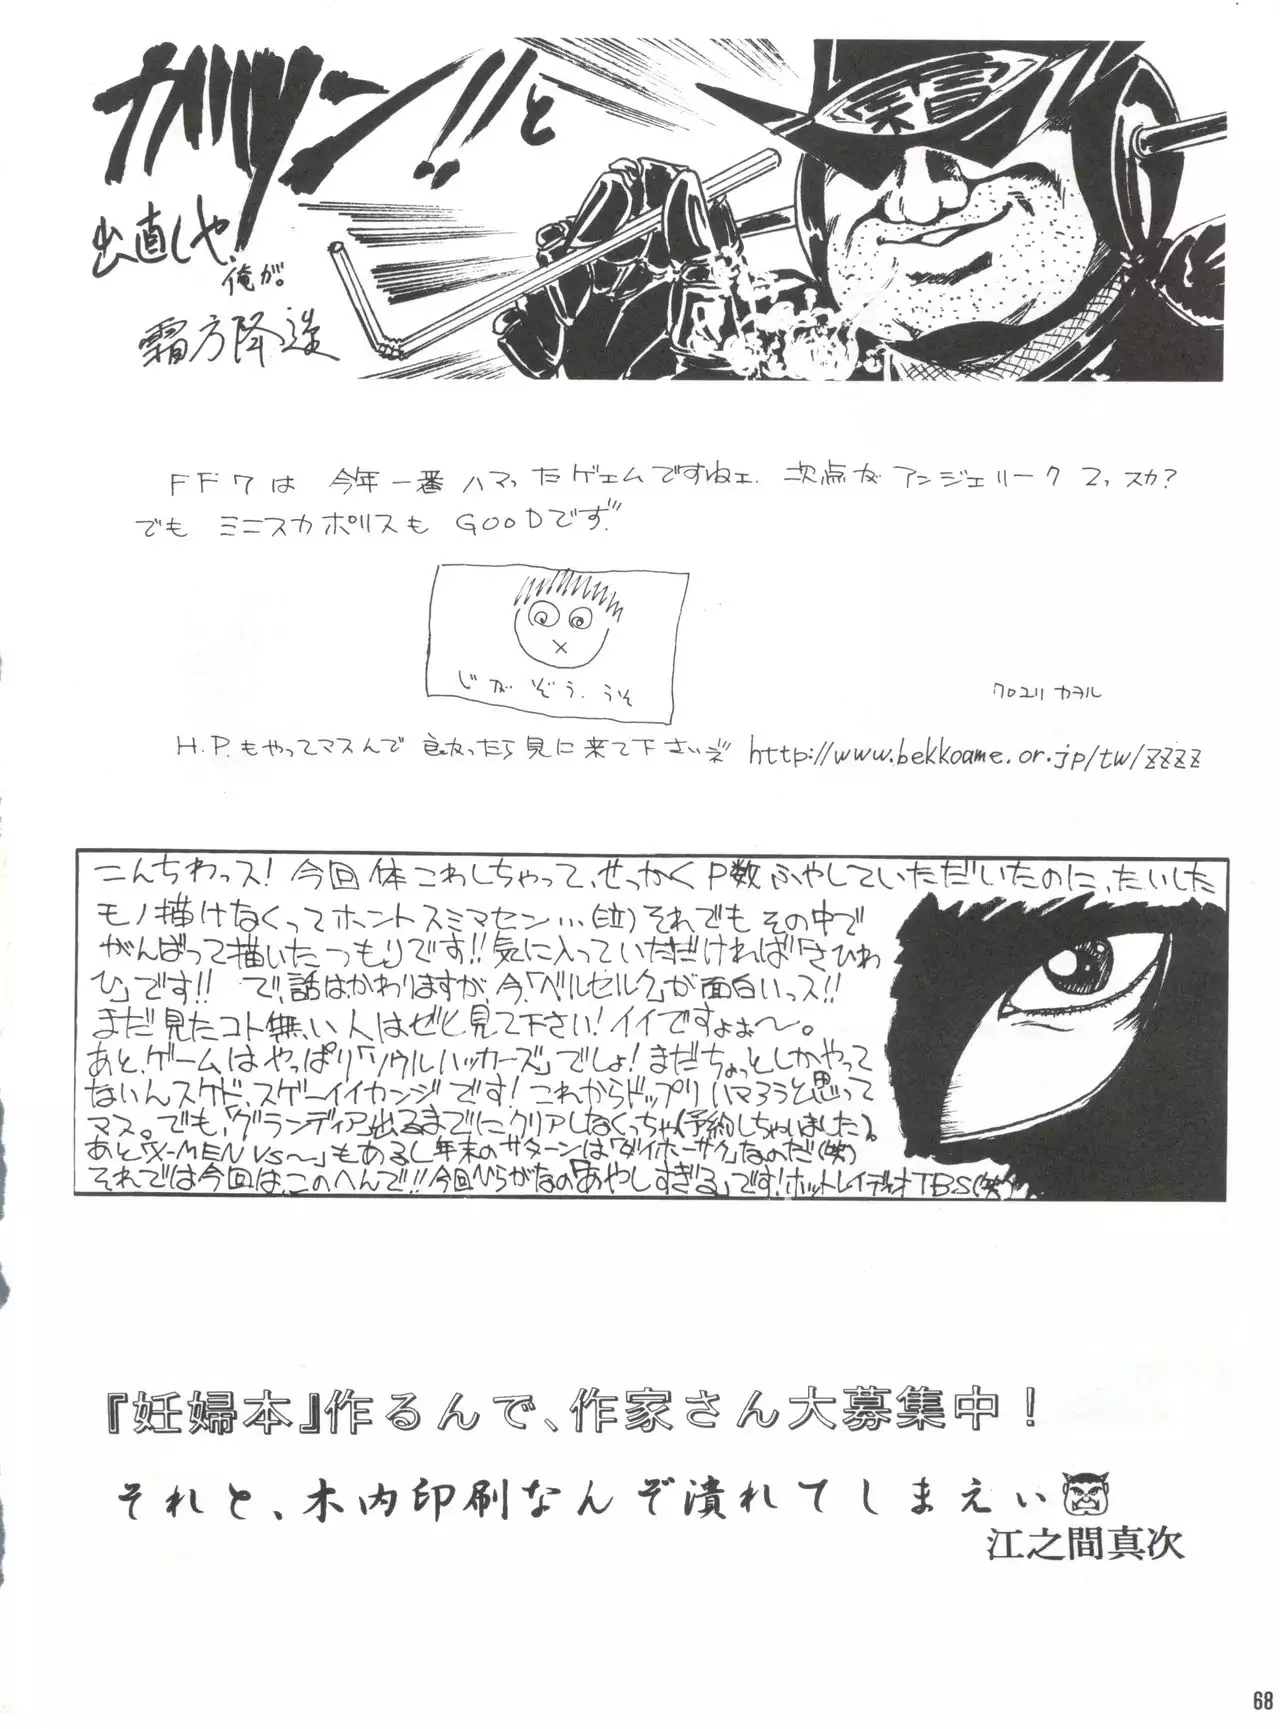 ガツン!!と
出直しや、
俺が。
霜方降造
FF7は 今年一番ハマったゲェムですねェ. 次点が アンジェリーク2っスカ?
でも ミニスカポリスも GOODです"
じがぞう.うそ
クロユリ カヲル
H.P.もやってマスんで 良かったら見に来て下さいネ http://www.bekkoame.or.jp/tw/zzzz
こんちわっス! 今回体こわしちゃって、せっかくP数ふやしていただいたのに、たいした
モノ描けなくってホントスミマセン…(泣)それでもその中で
がんばって描いたつもりです!!気に入っていただければ「さひわ
ひ」です!! で、話はかわりますが、今、「ベルセルク」が面白いっス!!
まだ見たコト無い人はぜひ見て下さい!イイですよぉ〜。
あと、ゲームはやっぱり「ソウルハッカーズ」でしょ!まだちょっとしかやって
ないんスケド、スゲーイイカンジです!これからドップリハマろうと思って
マス。でも「グランディア」出るまでにクリアしなくっちゃ(予約しちゃいました)。
あと「X-MEN VS〜」もあるし年末のサターンは「ダイホーサク」なのだ(笑)
それでは今回は、このへんで!!今回ひらがなの「あやしすぎる」です!ホットレイディオTBS(笑)
『妊婦本』作るんで、作家さん大募集中!
それと、木内印刷なんぞ潰れてしまえぃ
江之間真次
68